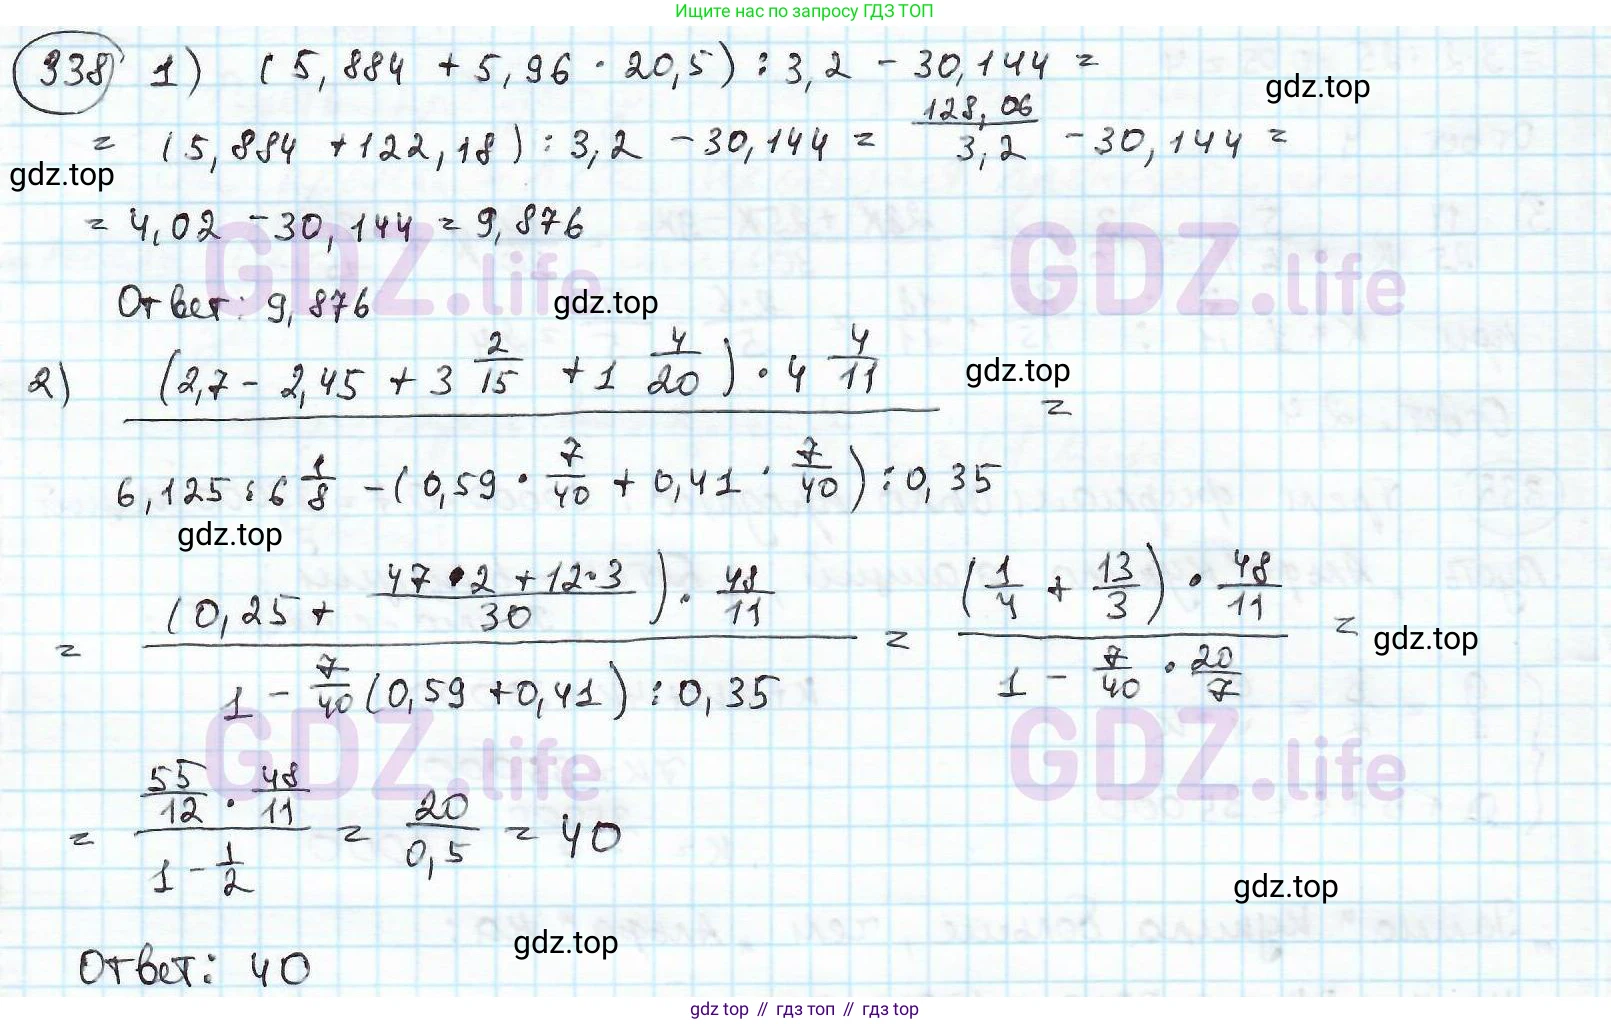 Ищите нас по запросу ГДЗ ТОП
938 1) (5,884 + 5,96 · 20,5) : 3,2 - 30,144 =
gdz.top
= (5,884 + 122,18) : 3,2 - 30,144 = 128,06/3,2 - 30,144 =
gdz.top
= 4,02 - 30,144 = 9,876
GDZ.life GDZ.life
Ответ: 9,876
gdz.top
2) (2,7 - 2,45 + 3 2/15 + 1 4/20) · 4 4/11
gdz.top
=
6,125 : 6 1/8 - (0,59 · 7/40 + 0,41 · 7/40) : 0,35
gdz.top
= (0,25 + (47·2 + 12·3)/30) · 48/11 = (1/4 + 13/3) · 48/11 =
gdz.top
1 - 7/40 (0,59 + 0,41) : 0,35 1 - 7/40 · 20/7
GDZ.life GDZ.life
= 55/12 · 48/11 = 20/0,5 = 40
1 - 1/2
gdz.top
gdz.top
Ответ: 40
gdz top // гдз топ // gdz top